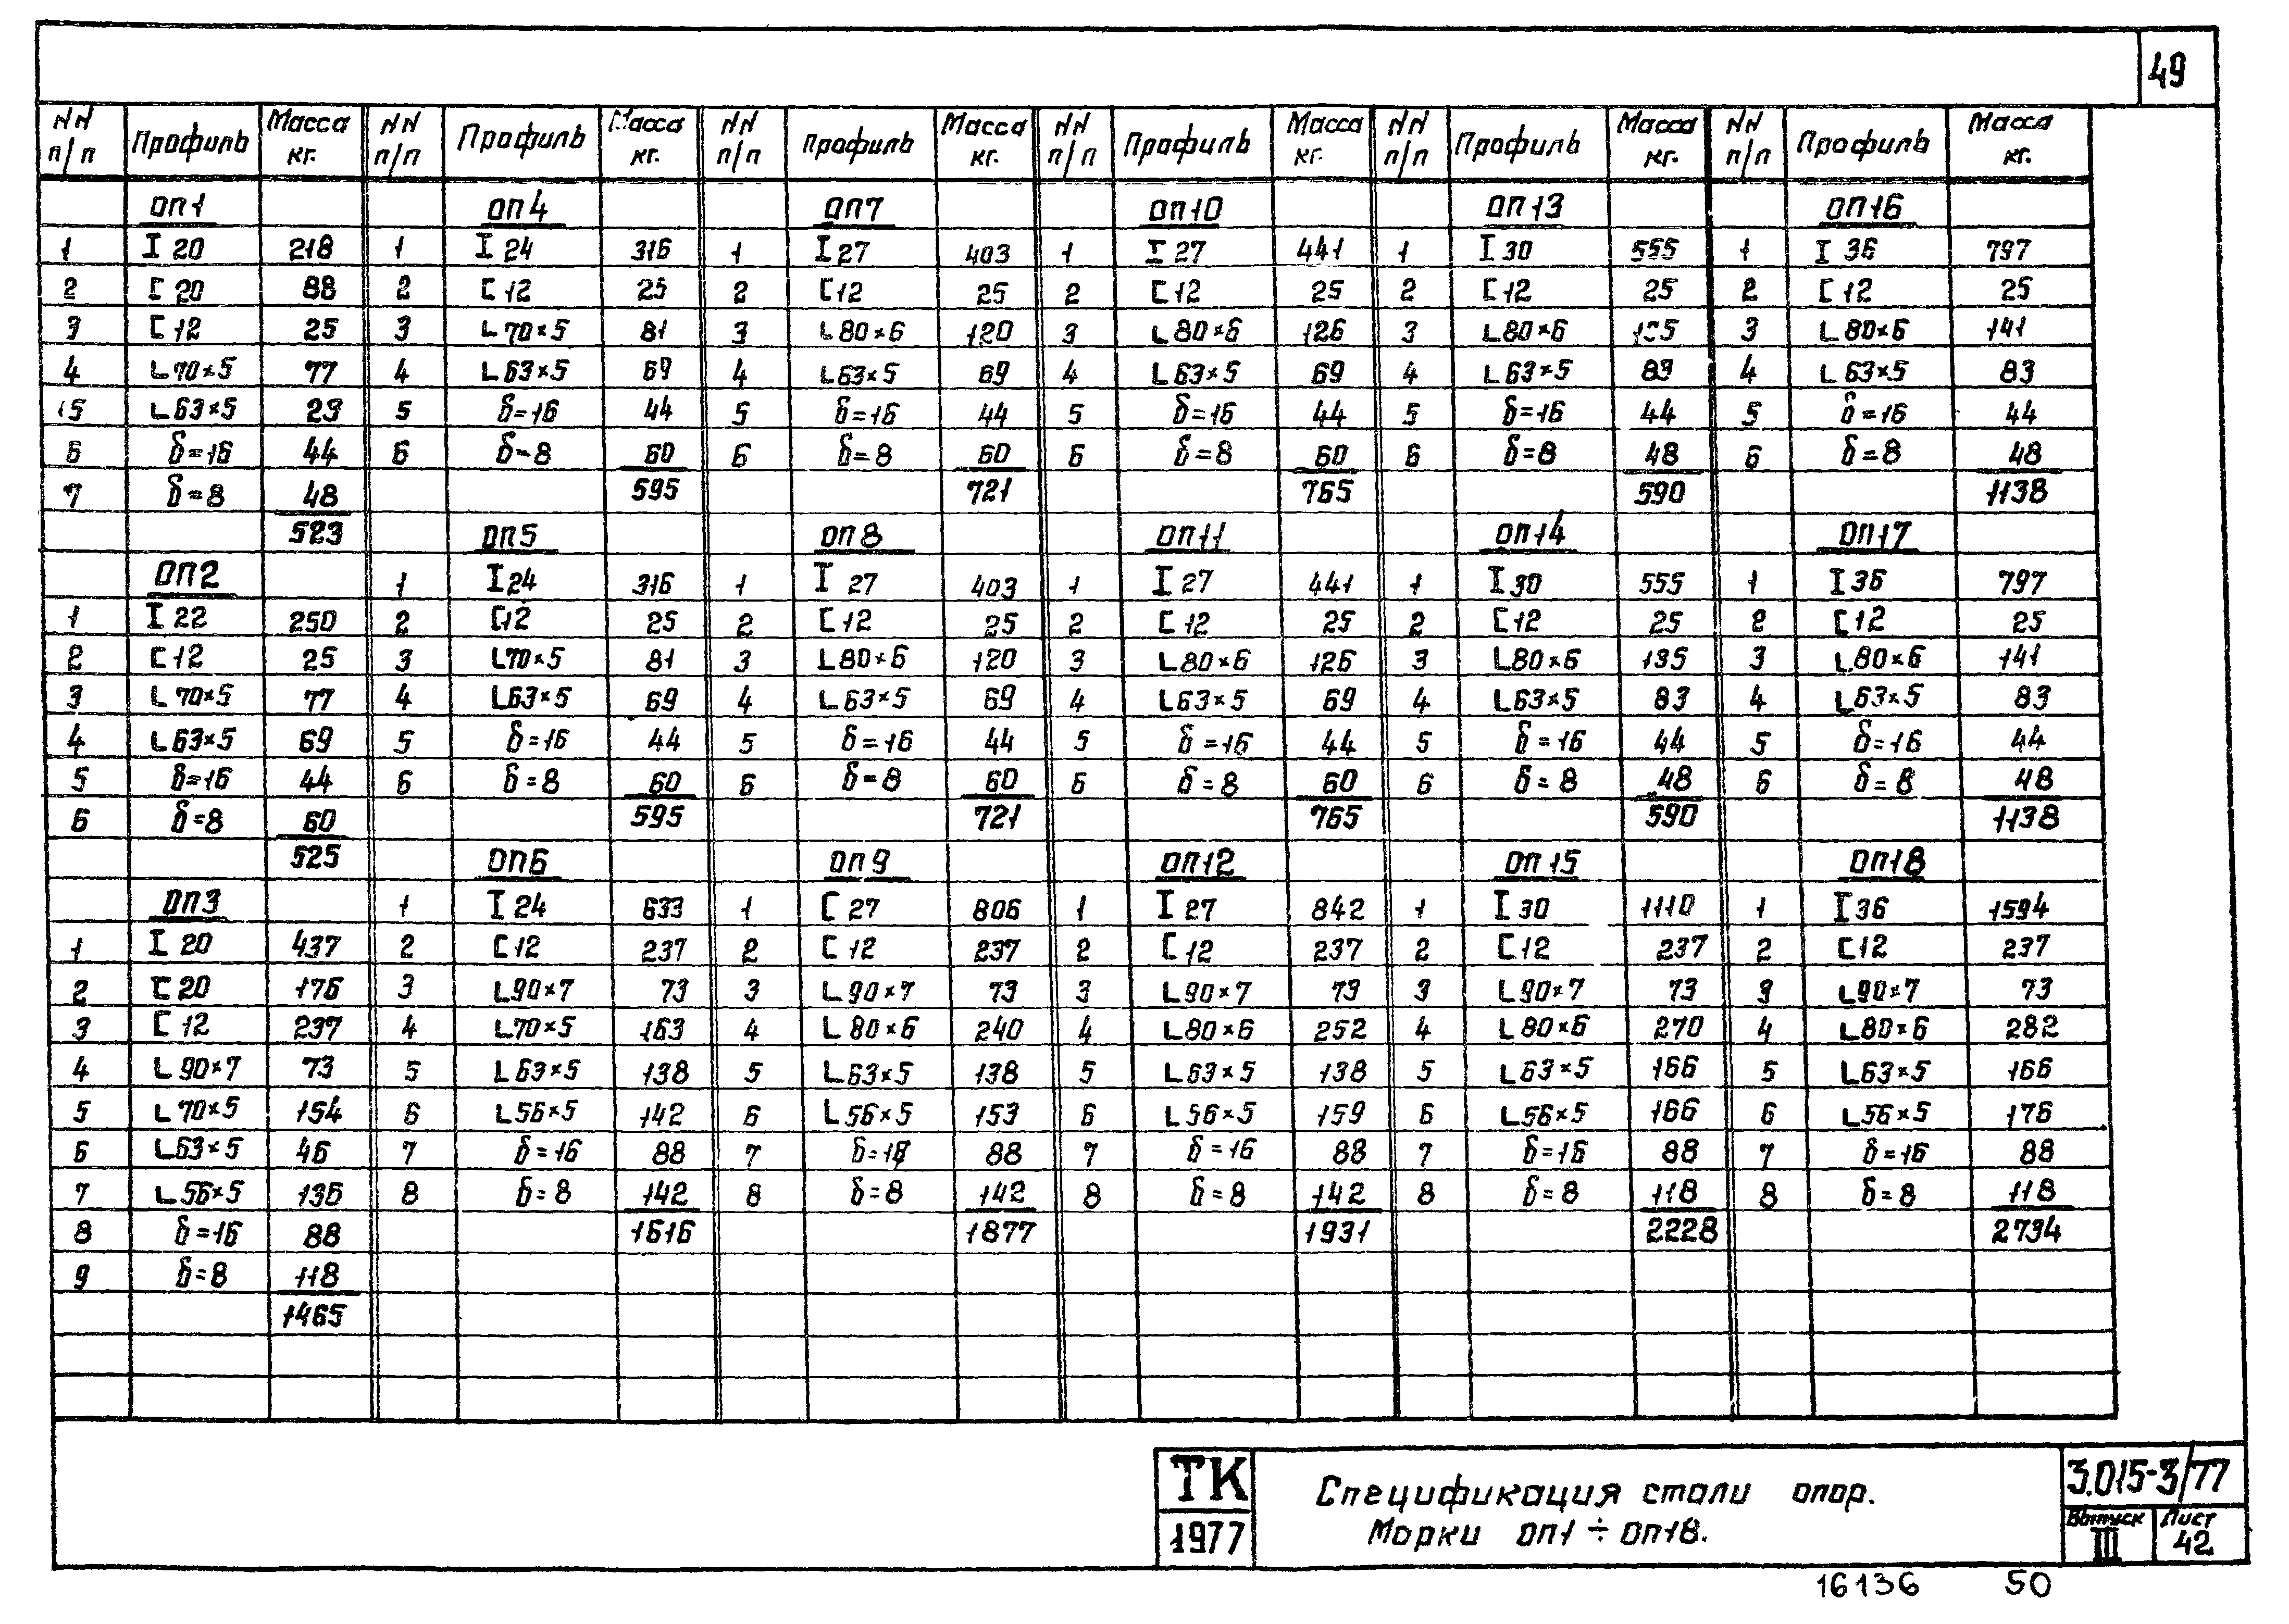 49
NN п/п Профиль Масса кг. NN п/п Профиль Масса кг. NN п/п Профиль Масса кг. NN п/п Профиль Масса кг. NN п/п Профиль Масса кг. NN п/п Профиль Масса кг.
ОП1 ОП4 ОП7 ОП10 ОП13 ОП16
1 I 20 218 1 I 24 316 1 I 27 403 1 I 27 441 1 I 30 555 1 I 36 797
2 [ 20 88 2 [ 12 25 2 [ 12 25 2 [ 12 25 2 [ 12 25 2 [ 12 25
3 [ 12 25 3 L 70×5 81 3 L 80×6 120 3 L 80×6 126 3 L 80×6 3 L 80×6 141
4 L 70×5 77 4 L 63×5 69 4 L 63×5 69 4 L 63×5 69 4 L 63×5 83 4 L 63×5 83
5 L 63×5 23 5 δ=16 44 5 δ=16 44 5 δ=16 44 5 δ=16 44 5 δ=16 44
6 δ=16 44 6 δ=8 60 6 δ=8 60 6 δ=8 60 6 δ=8 48 6 δ=8 48
7 δ=8 48 595 721 765 590 1138
523 ОП5 ОП8 ОП11 ОП14 ОП17
ОП2 1 I 24 316 1 I 27 403 1 I 27 441 1 I 30 555 1 I 36 797
1 I 22 250 2 [ 12 25 2 [ 12 25 2 [ 12 25 2 [ 12 25 2 [ 12 25
2 [ 12 25 3 L 70×5 81 3 L 80×6 120 3 L 80×6 126 3 L 80×6 135 3 L 80×6 141
3 L 70×5 77 4 L 63×5 69 4 L 63×5 69 4 L 63×5 69 4 L 63×5 83 4 L 63×5 83
4 L 63×5 69 5 δ=16 44 5 δ=16 44 5 δ=16 44 5 δ=16 44 5 δ=16 44
5 δ=16 44 6 δ=8 60 6 δ=8 60 6 δ=8 60 6 δ=8 48 6 δ=8 48
6 δ=8 60 595 721 765 590 1138
525 ОП6 ОП9 ОП12 ОП15 ОП18
ОП3 1 I 24 633 1 [ 27 806 1 I 27 842 1 I 30 1110 1 I 36 1594
1 I 20 437 2 [ 12 237 2 [ 12 237 2 [ 12 237 2 [ 12 237 2 [ 12 237
2 [ 20 176 3 L 90×7 73 3 L 90×7 73 3 L 90×7 73 3 L 90×7 73 3 L 90×7 73
3 [ 12 237 4 L 70×5 163 4 L 80×6 240 4 L 80×6 252 4 L 80×6 270 4 L 80×6 282
4 L 90×7 73 5 L 63×5 138 5 L 63×5 138 5 L 63×5 138 5 L 63×5 166 5 L 63×5 166
5 L 70×5 154 6 L 56×5 142 6 L 56×5 153 6 L 56×5 159 6 L 56×5 166 6 L 56×5 176
6 L 63×5 46 7 δ=16 88 7 88 7 δ=16 88 7 δ=16 88 7 δ=16 88
7 L 56×5 136 8 δ=8 142 8 δ=8 142 8 δ=8 142 8 δ=8 118 8 δ=8 118
8 δ=16 88 1616 1877 1931 2228 2734
9 δ=8 118
1465
ТК
1977
Спецификация стали опор.
Марки ОП1 ÷ ОП18.
3.015-3/77
Выпуск III
Лист 42
16136 50